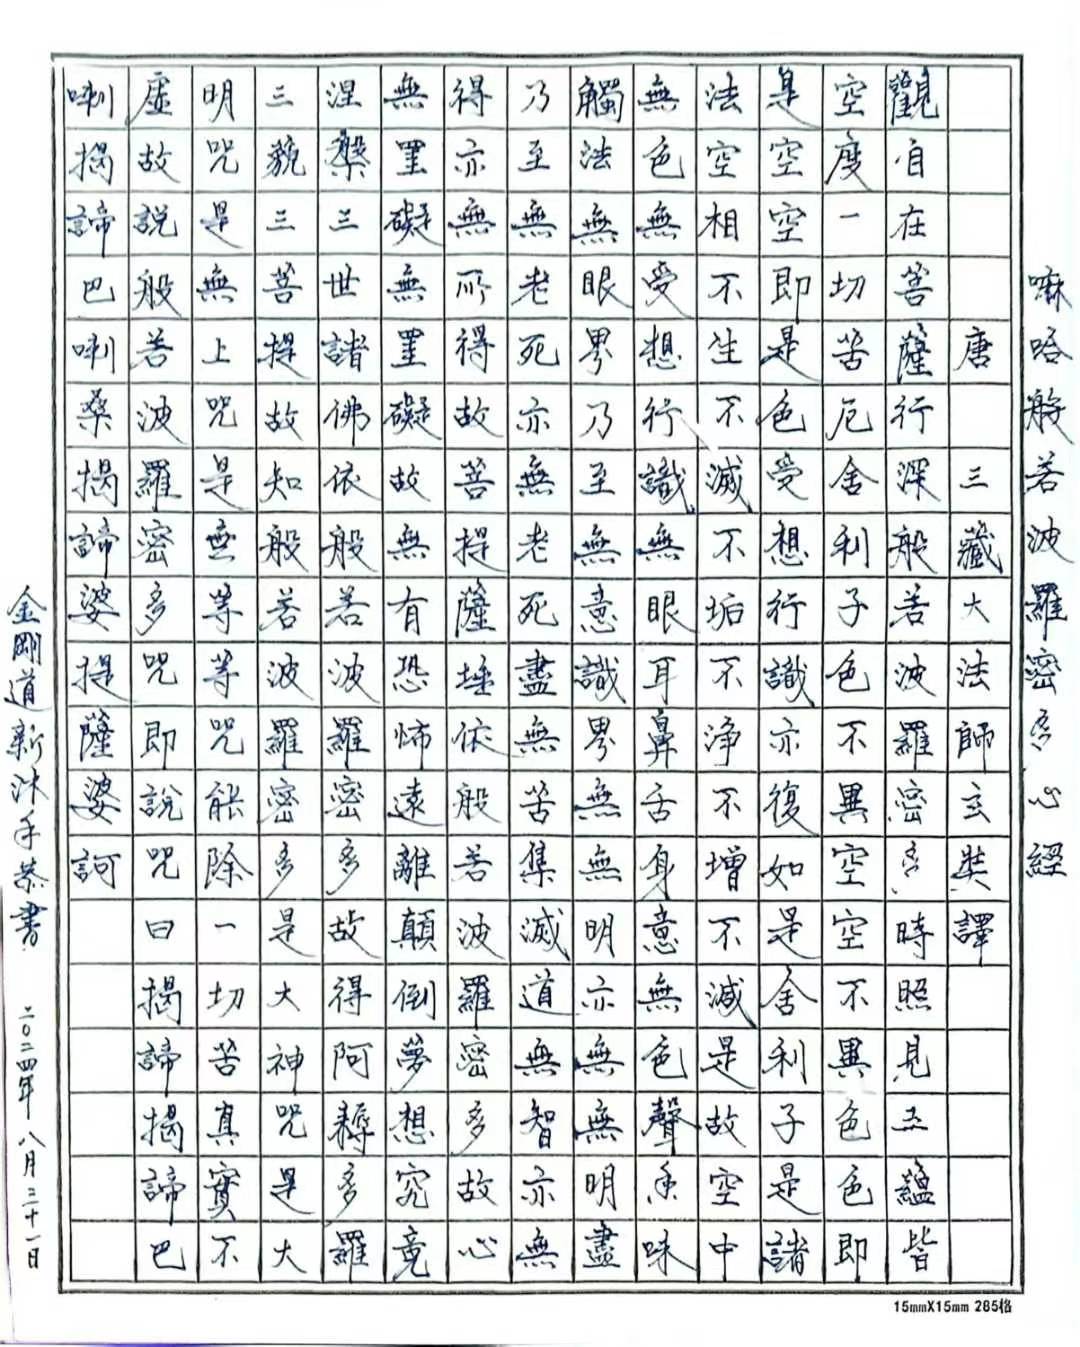 嘛哈般若波羅密多心經
唐三藏大法師玄奘譯
觀自在菩薩行深般若波羅密多時照見五蘊皆
空度一切苦厄舍利子色不異空空不異色色即
是空空即是色受想行識亦復如是舍利子是諸
法空相不生不滅不垢不淨不增不減是故空中
無色無受想行識無眼耳鼻舌身意無色聲香味
觸法無眼界乃至無意識界無無明亦無無明盡
乃至無老死亦無老死盡無苦集滅道無智亦無
得亦無所得故菩提薩埵依般若波羅密多故心
無罣礙無罣礙故無有恐怖遠離顛倒夢想究竟
涅槃三世諸佛依般若波羅密多故得阿耨多羅
三藐三菩提故知般若波羅密多是大神咒是大
明咒是無上咒是無等等咒能除一切苦真實不
虛故說般若波羅密多咒即說咒曰揭諦揭諦巴
喇揭諦巴喇桑揭諦婆提薩婆訶
金剛道新沐手恭書 二〇二四年八月三十一日
15mmX15mm 285格